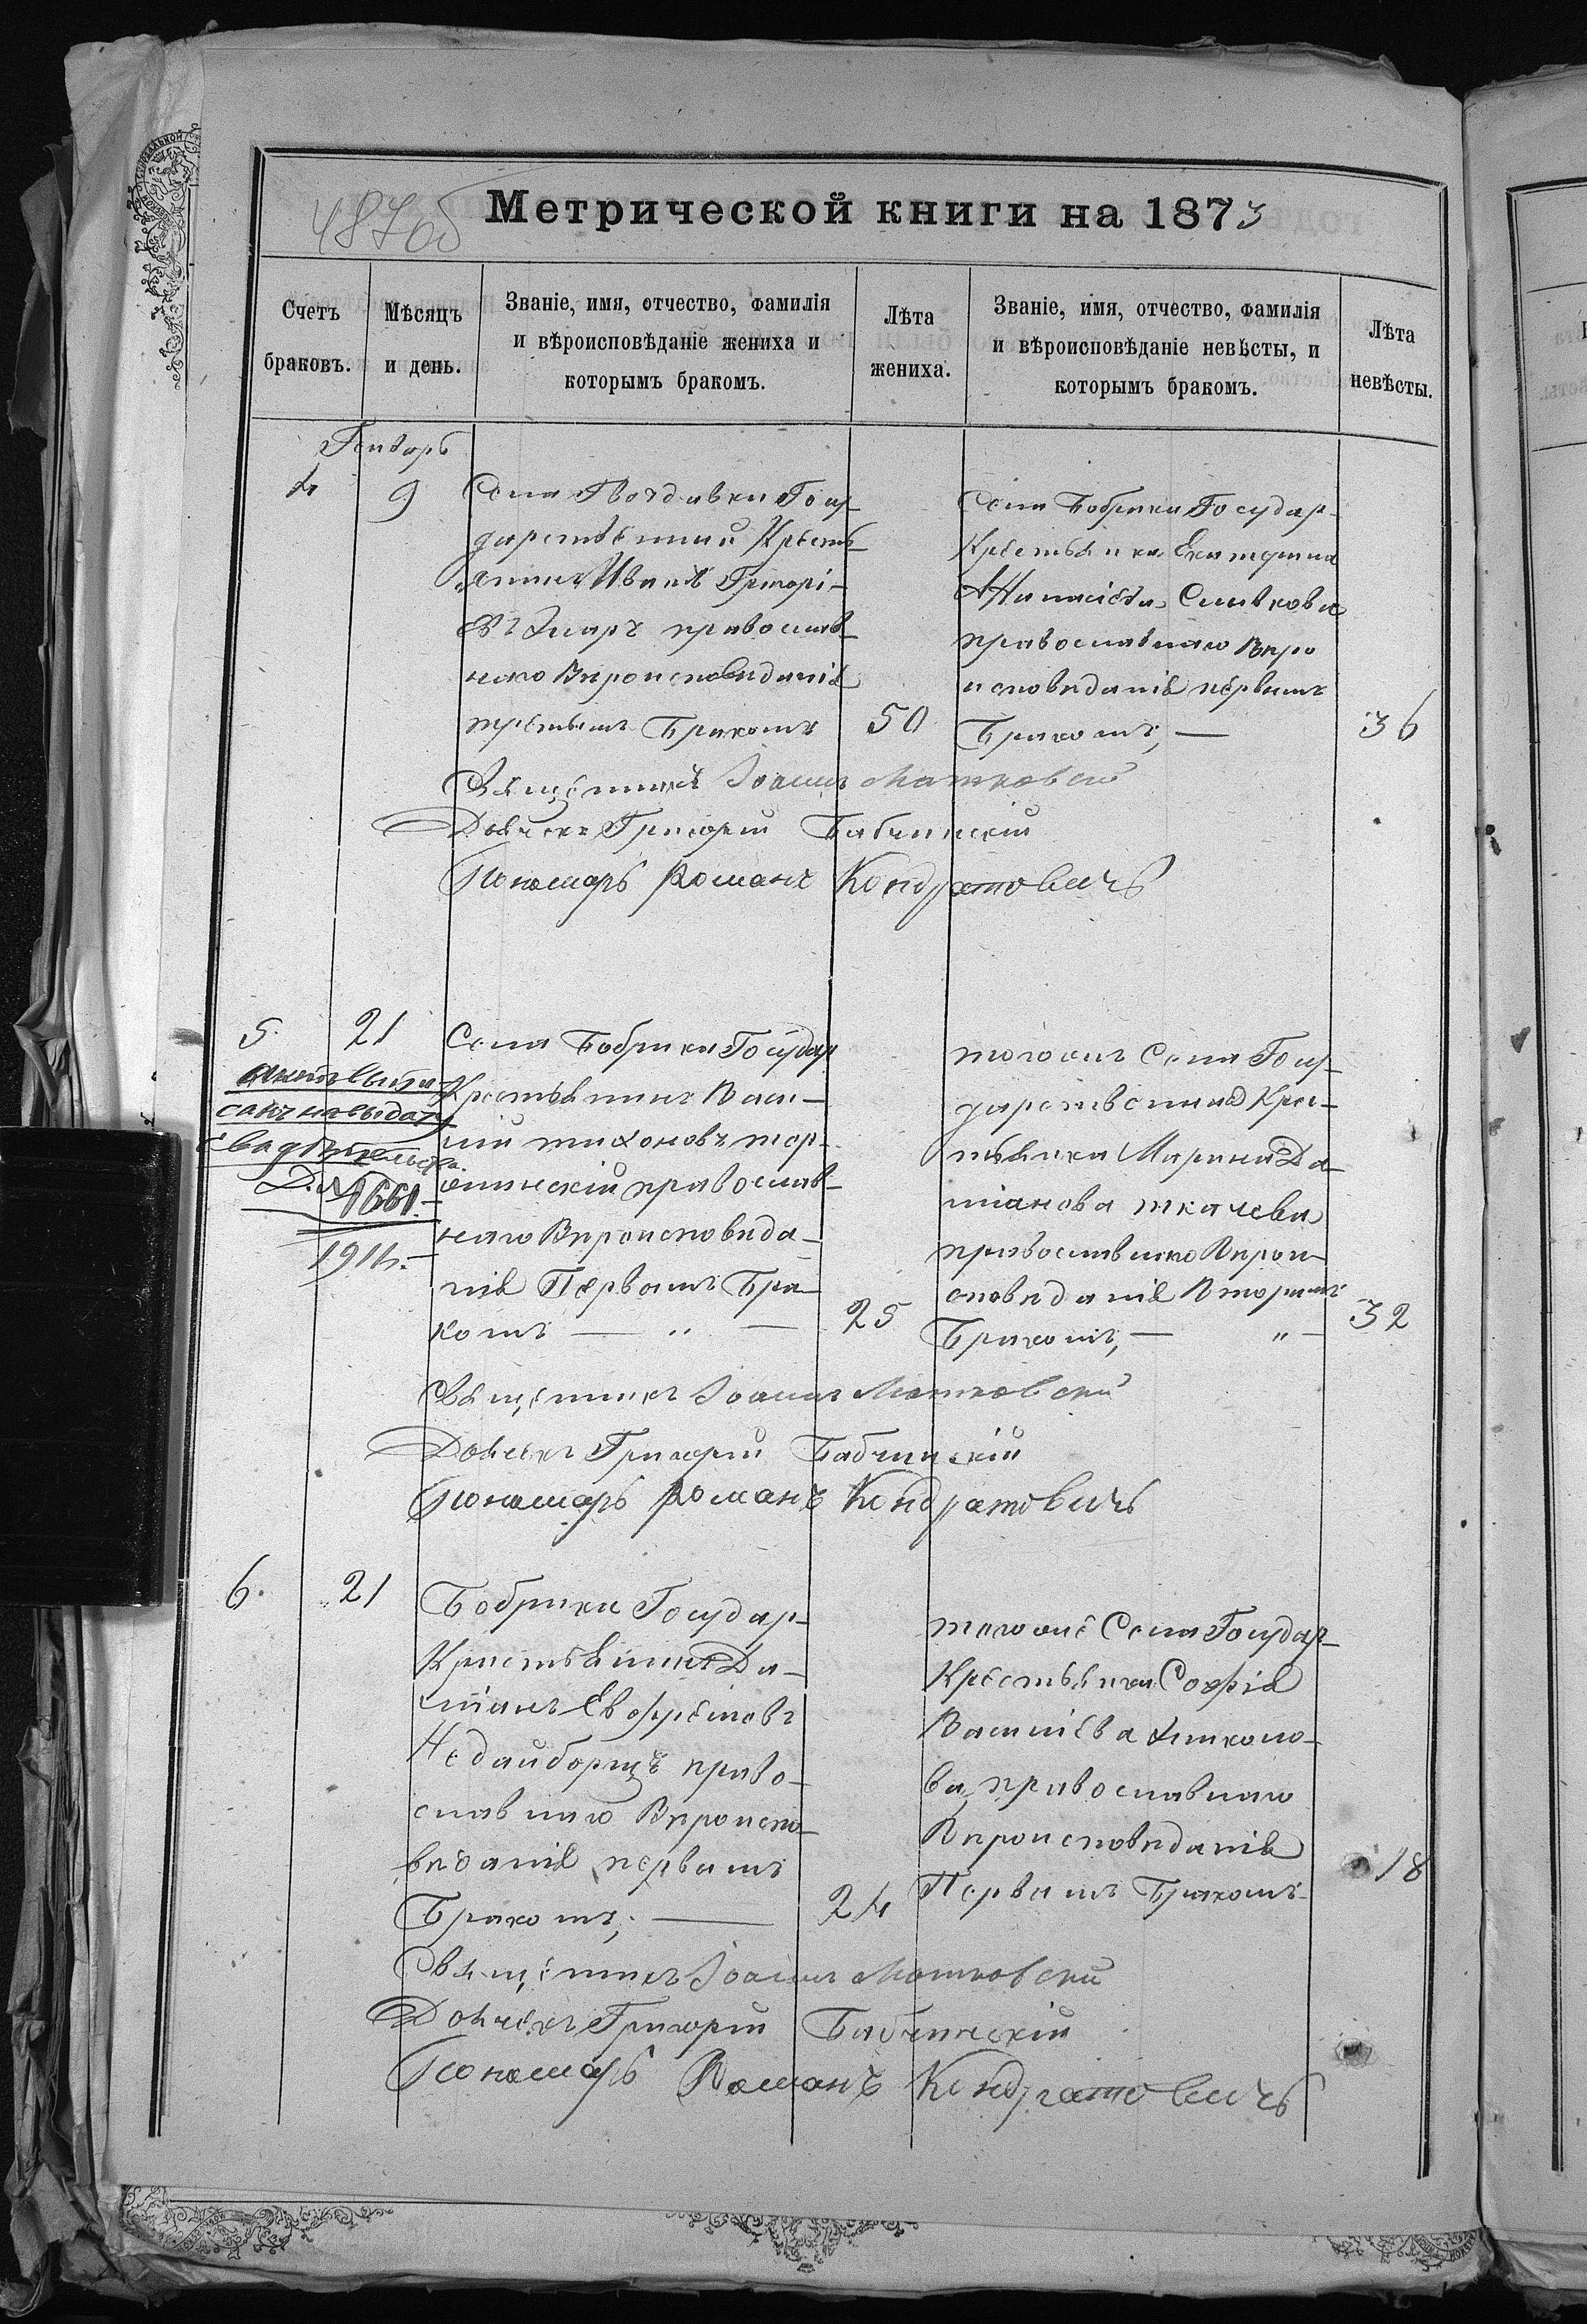 487об
Метрической книги на 1873
Счетъ браковъ.
Мѣсяцъ и день.
Званіе, имя, отчество, фамилія и вѣроисповѣданіе жениха и которымъ бракомъ.
Лѣта жениха.
Званіе, имя, отчество, фамилія и вѣроисповѣданіе невѣсты, и которымъ бракомъ.
Лѣта невѣсты.
Генварь
4
9
Села Гвоздавки Госу-
дарственный Кресть-
янинъ Иванъ Григорі-
евъ православ-
наго Вѣроисповѣданія
третьимъ Бракомъ
50
Села Бобрики Государ-
Крестьянка Екатерина
православнаго Вѣро
исповѣданія первымъ
Бракомъ, —
36
Священникъ Іоаннъ Матковскій
Дьячекъ Григорій Бабчинскій
Пономарь Романъ Кондратовичъ
5.
21
Села Бобрики Государ
Крестьянинъ Васи-
лій тихоновъ тор-
православ-
наго Вѣроисповѣда-
нія Первымъ Бра-
комъ — „ —
25
тогожъ Села Госу-
дарственная Крес-
тьянка Марина Да-
міанова ткачева
православнаго Вѣрои-
сповѣданія Вторымъ
Бракомъ, — „ —
32
выпи-
санъ на выдачу
свидѣтельства.
Д. № 1661.
1914.
Священникъ Іоаннъ Матковскій
Дьячекъ Григорій Бабчинскій
Пономарь Романъ Кондратовичъ
6.
21
Бобрики Государ-
Крестьянинъ Да-
міанъ Евофреімовъ
Недайборщъ право-
славнаго Вѣроиспо-
вѣданія первымъ
Бракомъ; —
24
тогоже Села Государ-
Крестьянка Софія
Василіева
ва, православнаго
Вѣроисповѣданія
Первымъ Бракомъ
18
Священникъ Іоаннъ Матковскій
Дьячекъ Григорій Бабчинскій
Пономарь Романъ Кондратовичъ